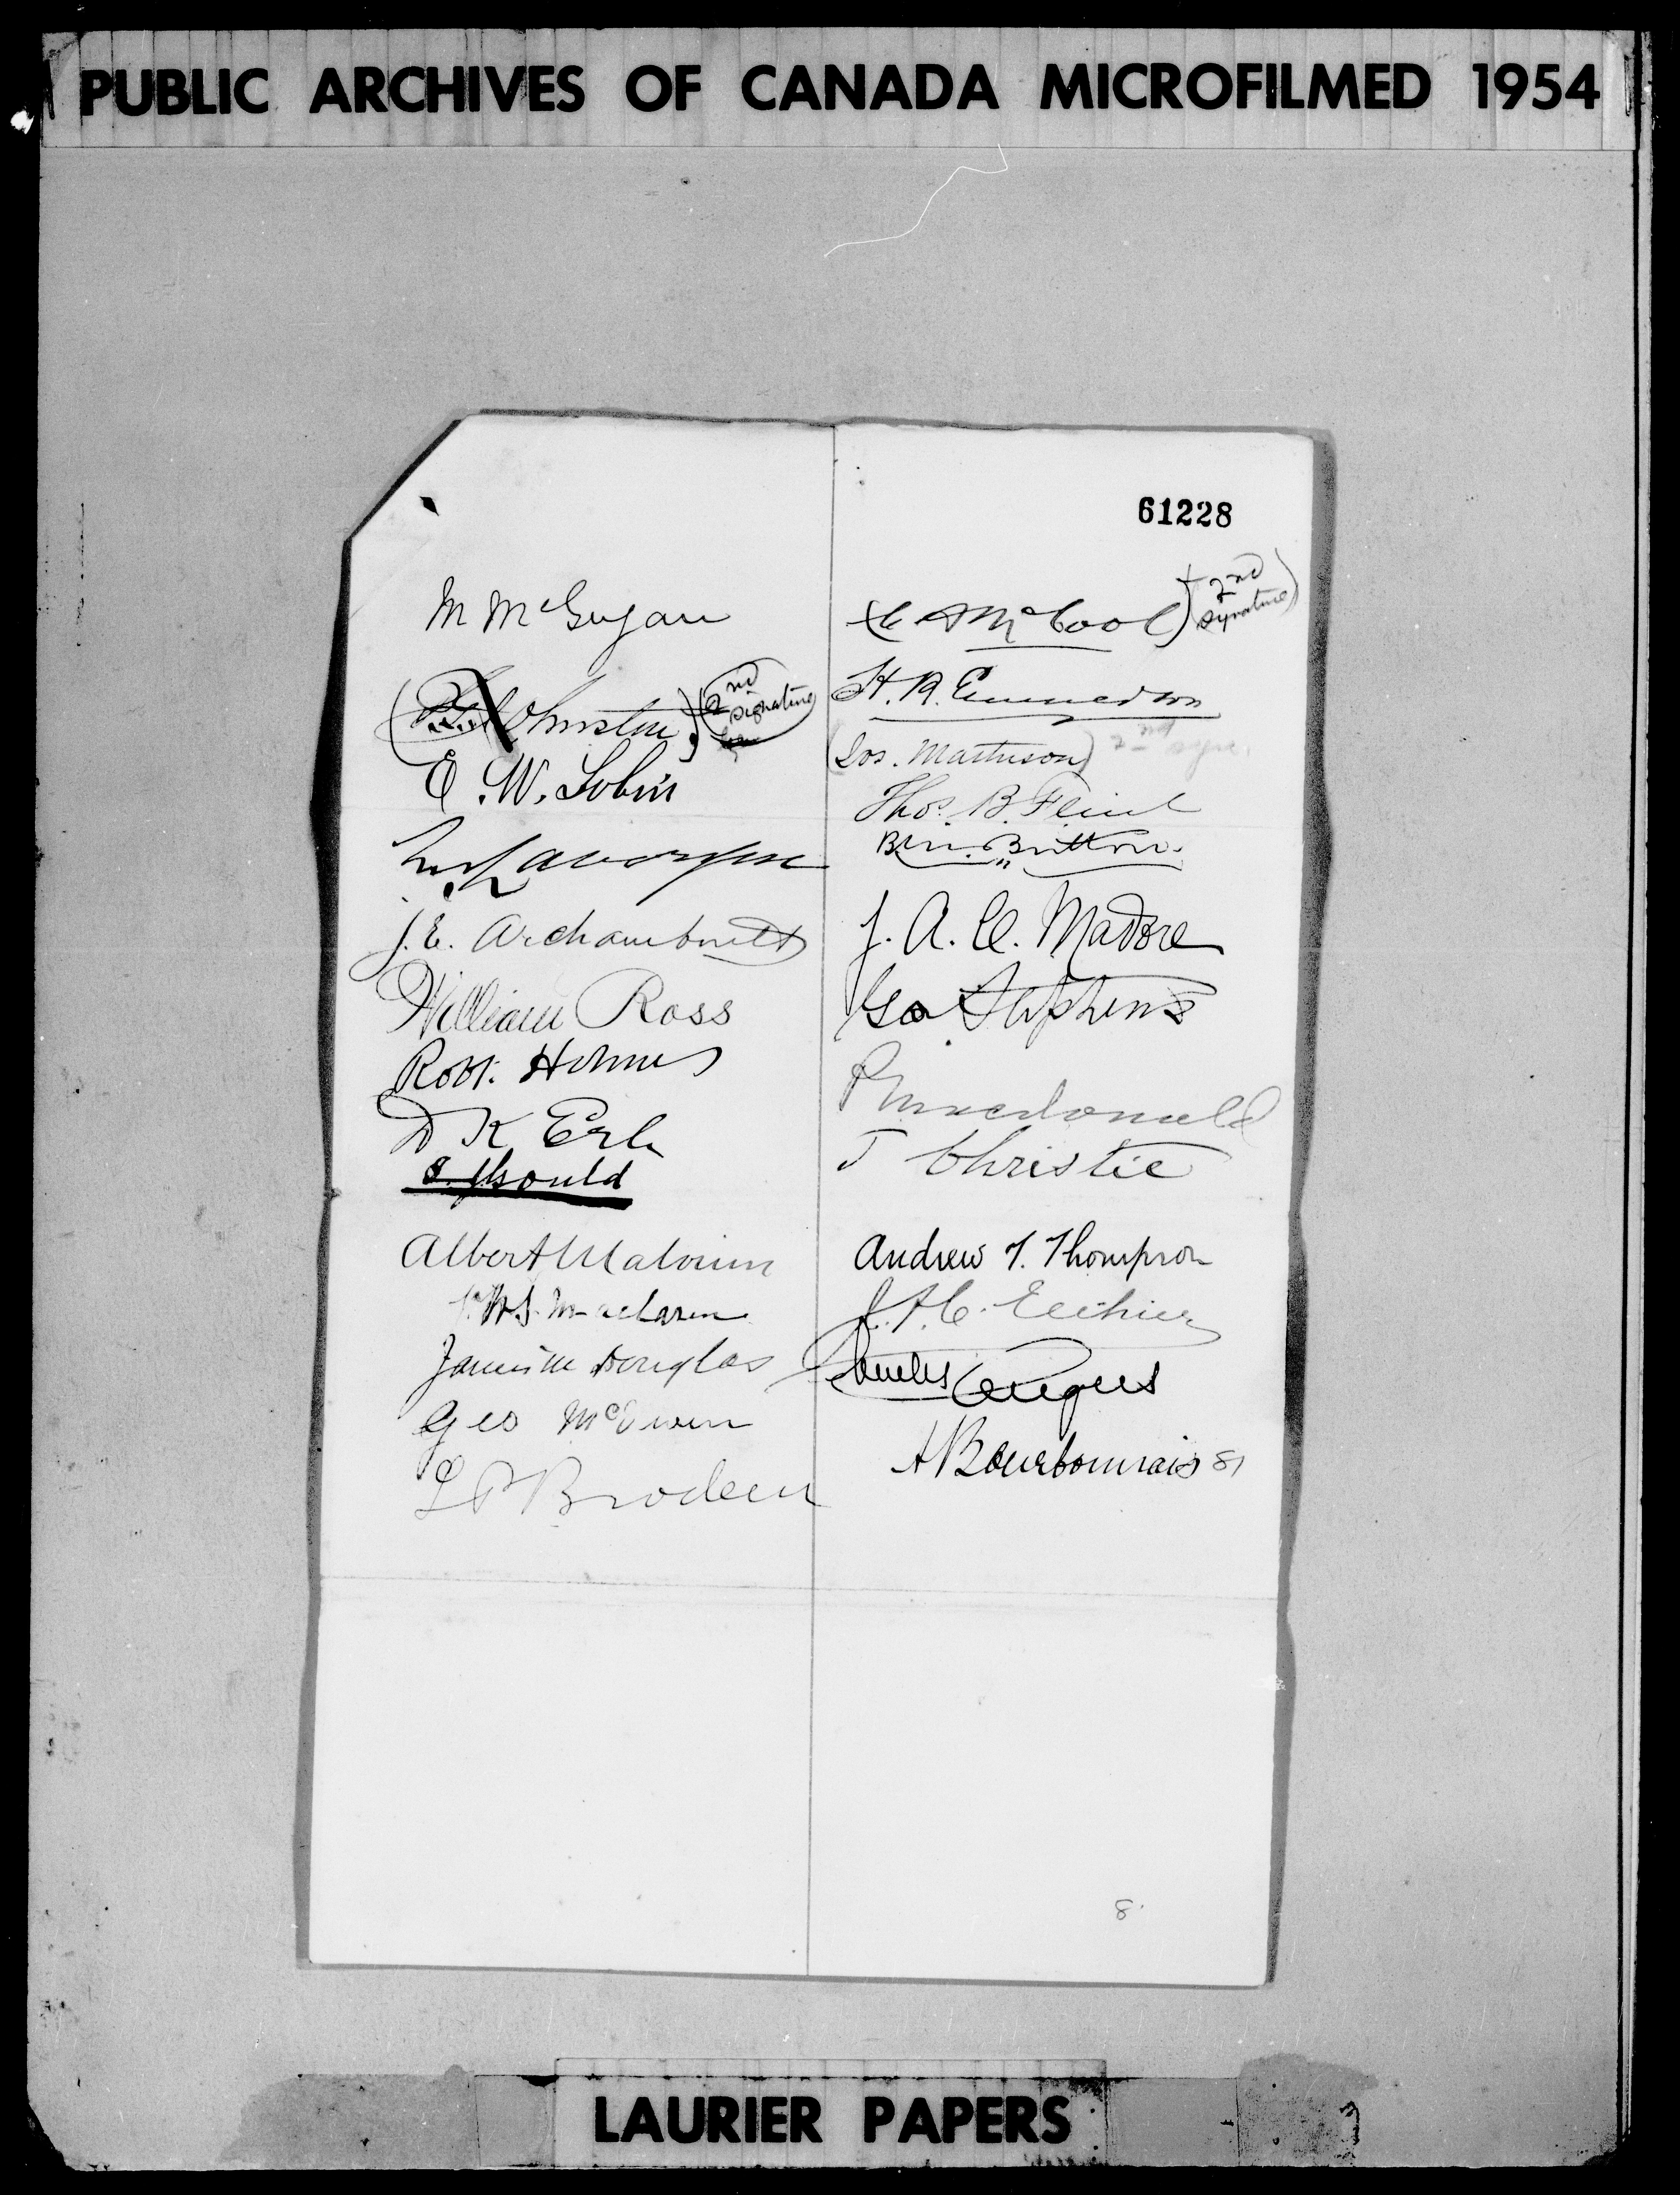 PUBLIC ARCHIVES OF CANADA MICROFILMED 1954
61228
M McGugan
Johnston) (2nd signature)
E. W. Tobin
Lavergne
J. E. Archambault
William Ross
Robt. Holmes
D K Erb
Gould
Albert Malouin
Maclaren
James M Douglas
Geo McEwen
L P Brodeur
(C A McCool) (2nd signature)
H. R. Emmerson
(Jos. Matheson) 2nd
Thos. B. Flint
Britton
J. A. C. Madore
Geo Stephens
P Macdonald
T Christie
Andrew T. Thompson
J. A. C. Ethier
Charles Angers
A Bourbonnais 81
8
LAURIER PAPERS